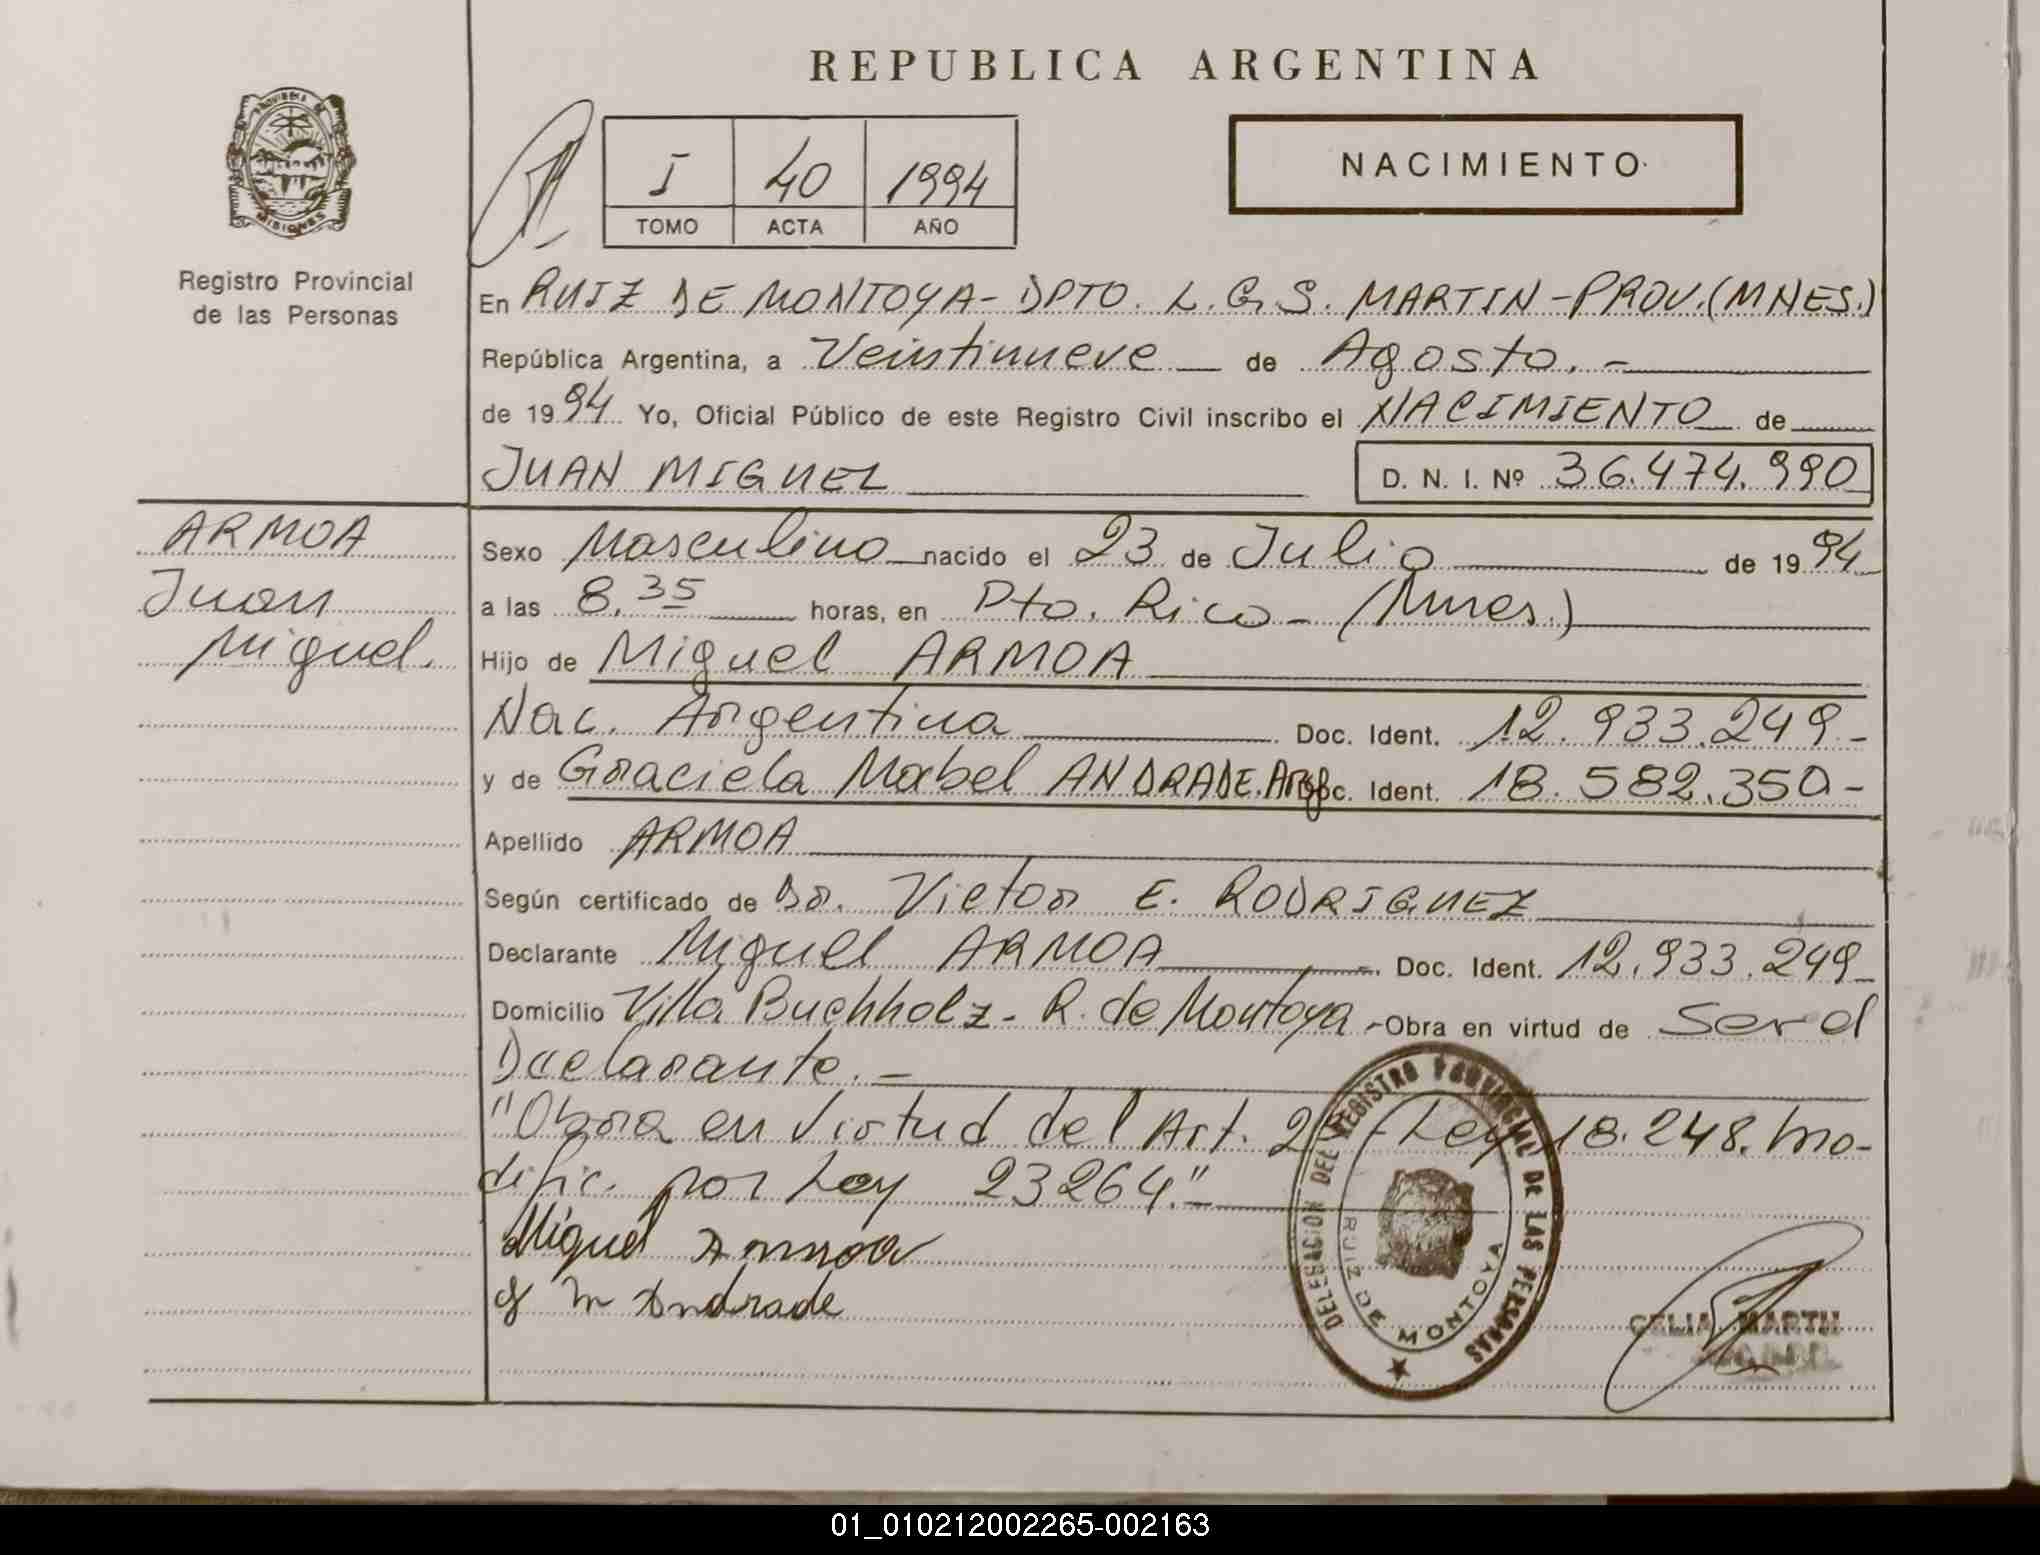 REPUBLICA ARGENTINA
PROVINCIA DE MISIONES
I 40 1994
TOMO ACTA AÑO
NACIMIENTO
Registro Provincial
de las Personas
En RUIZ DE MONTOYA - DPTO. L. G. S. MARTIN - PROV. (MNES.)
República Argentina, a Veintinueve de Agosto. -
de 1994 Yo, Oficial Público de este Registro Civil inscribo el NACIMIENTO de
JUAN MIGUEL D. N. I. Nº 36.474.990
ARMOA
Juan
Miguel.
Sexo Masculino nacido el 23 de Julio de 1994
a las 8.35 horas, en Pto. Rico - (Mnes.)
Hijo de Miguel ARMOA
Nac. Argentina Doc. Ident. 12.933.249 -
y de Graciela Mabel ANDRADE. Arg. Doc. Ident. 18.582.350 -
Apellido ARMOA
Según certificado de Dr. Victor E. RODRIGUEZ
Declarante Miguel ARMOA Doc. Ident. 12.933.249
Domicilio Villa Buchholz - R. de Montoya - Obra en virtud de Ser el
Declarante. -
"Obra en Virtud del Art. - Ley 18.248. mo-
dific. por Ley 23264." -
Miguel Armoa
g m Andrade
DELEGACION DEL REGISTRO PROVINCIAL DE LAS PERSONAS
RUIZ DE MONTOYA
CELIA MARTH
01_010212002265-002163